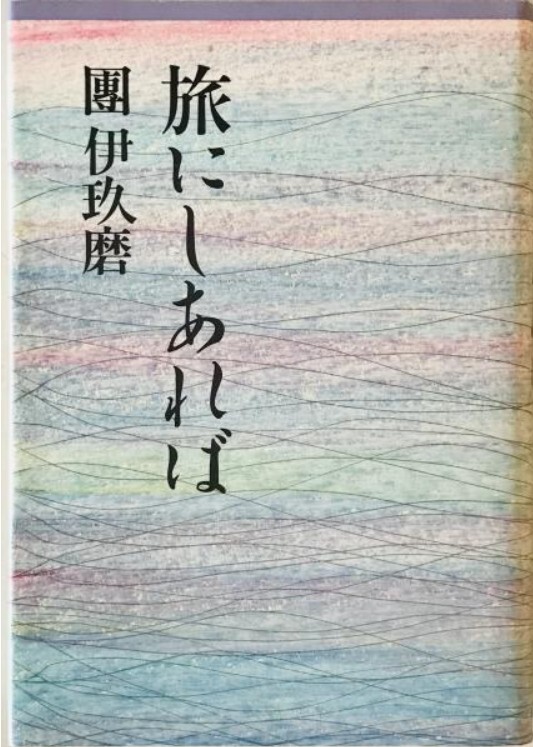 旅にしあれば
團伊玖磨